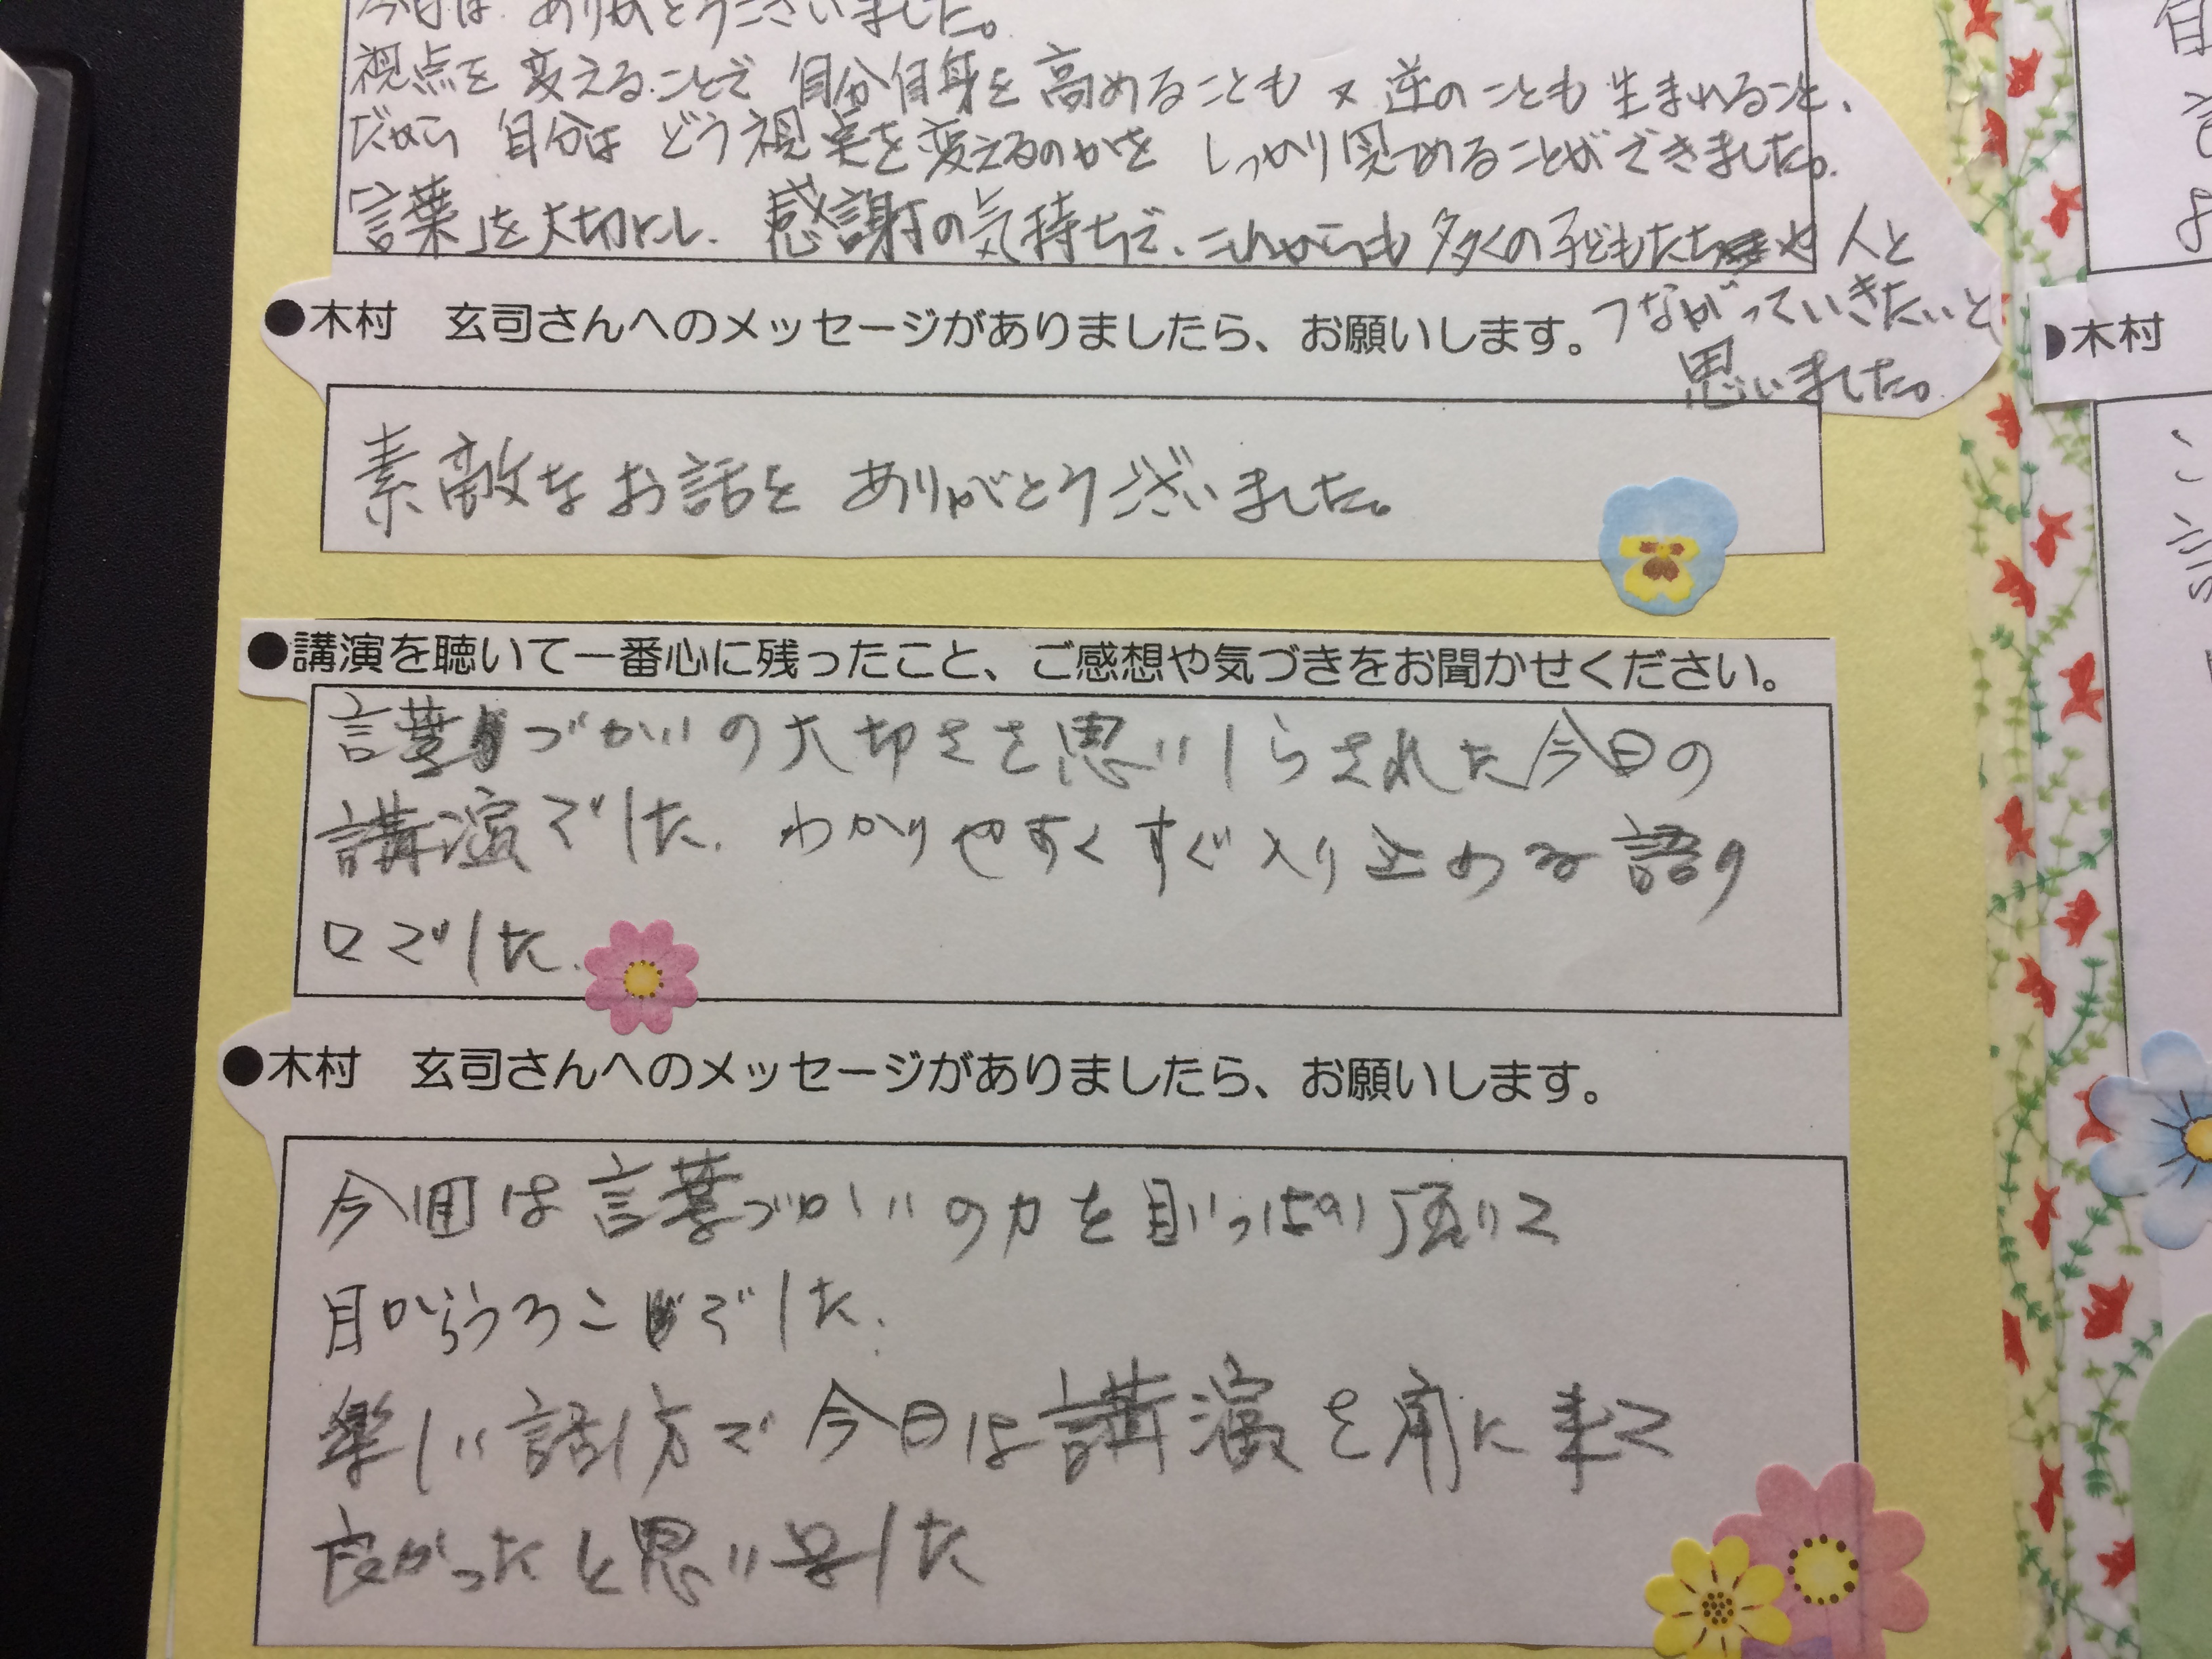 今日は ありがとうございました。
視点を変えることで 自分自身を高めることも 又 逆のことも 生まれること、
だから 自分は どう視点を変えるのかを しっかり見つめることができました。
「言葉」を大切にし、感謝の気持ちで、これからも 多くの子どもたちや 人と
つながっていきたいと
思いました。
●木村 玄司さんへのメッセージがありましたら、お願いします。
素敵なお話を ありがとうございました。
●講演を聴いて一番心に残ったこと、ご感想や気づきをお聞かせください。
言葉づかいの大切さを思いしらされた今日の
講演でした。わかりやすくすぐ入り込める語り
口でした。
●木村 玄司さんへのメッセージがありましたら、お願いします。
今回は言葉づかいの力を目いっぱい頂いて
目からうろこでした。
楽しい話し方で今日は講演を聞に来て
良かったと思いました
●木村